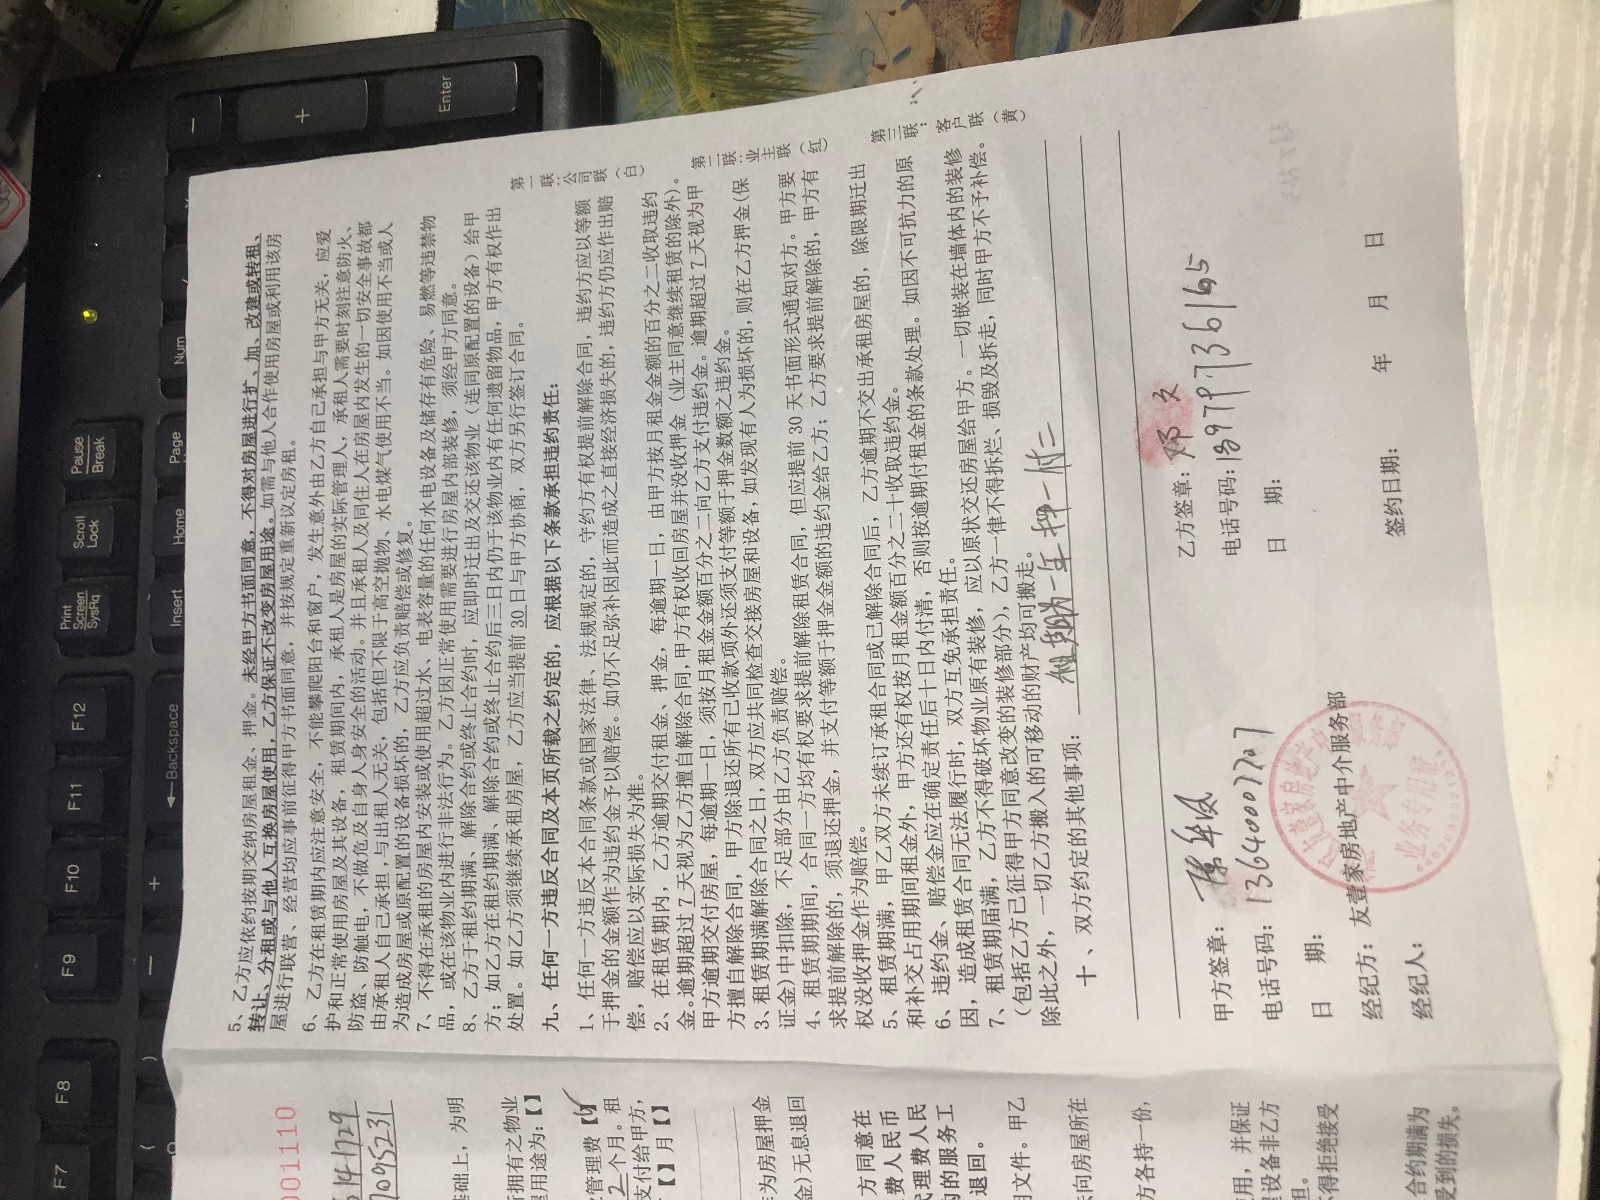 5、乙方应依约按期交纳房屋租金、押金。未经甲方书面同意，不得对房屋进行扩、加、改建或转租、
转让、分租或与他人互换房屋使用，乙方保证不改变房屋用途。如需与他人合作使用房屋或利用该房
屋进行联营、经营均应事前征得甲方书面同意，并按规定重新议定房租。
6、乙方在租赁期内应注意安全，不能攀爬阳台和窗户，发生意外由乙方自己承担与甲方无关，应爱
护和正常使用房屋及其设备，租赁期间内，承租人是房屋的实际管理人，承租人需要时刻注意防火、
防盗、防触电，不做危及自身人身安全的活动。并且承租人及同住人在房屋内发生的一切安全事故都
由承租人自己承担，与出租人无关，包括但不限于高空抛物、水电煤气使用不当。如因使用不当或人
为造成房屋或原配置的设备损坏的，乙方应负责赔偿或修复。
7、不得在承租的房屋内安装或使用超过水、电表容量的任何水电设备及储存有危险、易燃等违禁物
品，或在该物业内进行非法行为。乙方因正常使用需要进行房屋内部装修，须经甲方同意。
8、乙方于租约期满、解除合约或终止合约时，应即时迁出及交还该物业（连同原配置的设备）给甲
方；如乙方在租约期满、解除合约或终止合约后三日内仍于该物业内有任何遗留物品，甲方有权作出
处置。如乙方须继续承租房屋，乙方应当提前30日与甲方协商，双方另行签订合同。
九、任何一方违反合同及本页所载之约定的，应根据以下条款承担违约责任：
1、任何一方违反本合同条款或国家法律、法规规定的，守约方有权提前解除合同，违约方应以等额
于押金的金额作为违约金予以赔偿。如仍不足弥补因此而造成之直接经济损失的，违约方仍应作出赔
偿，赔偿应以实际损失为准。
2、在租赁期内，乙方逾期交付租金、押金，每逾期一日，由甲方按月租金金额的百分之二收取违约
金。逾期超过7天视为乙方擅自解除合同，甲方有权收回房屋并没收押金（业主同意继续租赁的除外）。
甲方逾期交付房屋，每逾期一日，须按月租金金额百分之二向乙方支付违约金。逾期超过7天视为甲
方擅自解除合同，甲方除退还所有已收款项外还须支付等额于押金数额之违约金。
3、租赁期满解除合同之日，双方应共同检查交接房屋和设备，如发现有人为损坏的，则在乙方押金(保
证金)中扣除，不足部分由乙方负责赔偿。
4、租赁期期间，合同一方均有权要求提前解除租赁合同，但应提前30天书面形式通知对方。甲方要
求提前解除的，须退还押金，并支付等额于押金金额的违约金给乙方；乙方要求提前解除的，甲方有
权没收押金作为赔偿。
5、租赁期满，甲乙双方未续订承租合同或已解除合同后，乙方逾期不交出承租房屋的，除限期迁出
和补交占用期间租金外，甲方还有权按月租金额百分之二十收取违约金。
6、违约金、赔偿金应在确定责任后十日内付清，否则按逾期付租金的条款处理。如因不可抗力的原
因，造成租赁合同无法履行时，双方互免承担责任。
7、租赁期届满，乙方不得破坏物业原有装修，应以原状交还房屋给甲方。一切嵌装在墙体内的装修
（包括乙方已征得甲方同意改变的装修部分），乙方一律不得拆烂、损毁及拆走，同时甲方不予补偿。
除此之外，一切乙方搬入的可移动的财产均可搬走。
十、双方约定的其他事项：租期为一年 押一付二
甲方签章：
电话号码：13640007227
日 期：
经纪方：友壹家房地产中介服务部
经纪人：
乙方签章：邓文
电话号码：18979736165
日 期：
签约日期： 年 月 日
第一联：公司联（白）
第二联：业主联（红）
第三联：客户联（黄）
业务专用章
001110
7095231
基础上，为明
所拥有之物业
用途为：【】
管理费【
2个月。租
支付给甲方，
【】月【】
作为房屋押金
金）无息退回
方同意在
费人民币
代理费人民
的服务工
退回。
文件。甲乙
向房屋所在
方各持一份，
使用，并保证
设备非乙方
担。
不得拒绝接受
合约期满为
受到的损失。
F7
F8
F9
F10
F11
F12
Print
Screen
SysRq
Scroll
Lock
Pause
Break
Backspace
Insert
Home
Page
Num
Enter